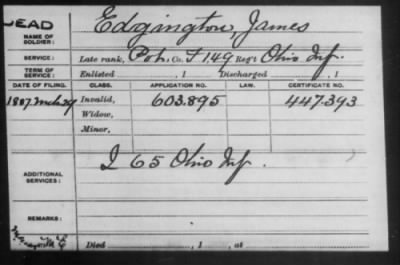 DEAD
NAME OF SOLDIER: Edgington, James
SERVICE: Late rank, Pvt, Co. F 149 Reg't Ohio Inf.
TERM OF SERVICE: Enlisted , 1 Discharged , 1
DATE OF FILING. CLASS. APPLICATION NO. LAW. CERTIFICATE NO.
1887 Mch 29 Invalid, 603.895 447.393
Widow,
Minor,
ADDITIONAL SERVICES: I 65 Ohio Inf.
REMARKS:
Died , 1 , at